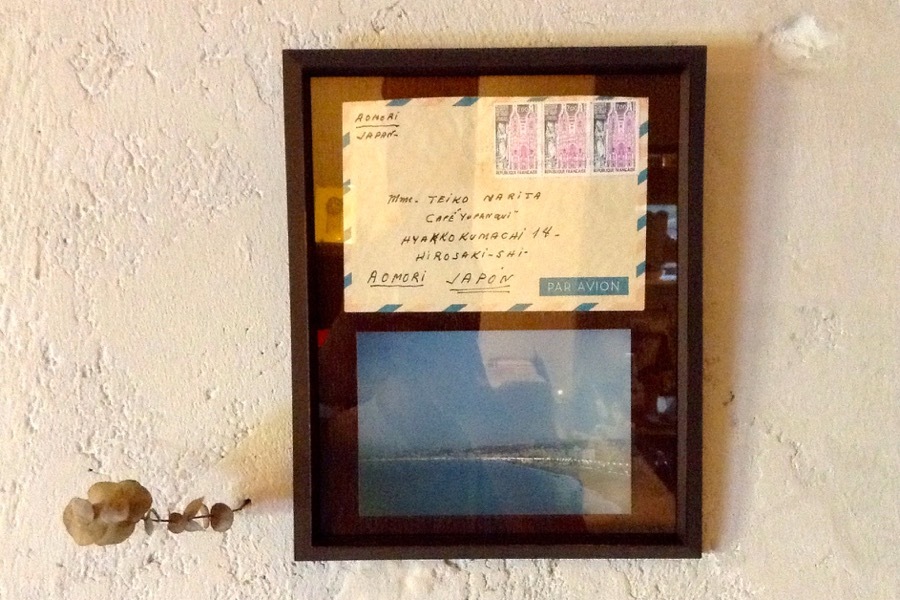 AOMORI
JAPAN-
Mme. TEIKO NARITA
CAFÉ "YUPANQUI"
HYAKKOKUMACHI 14-
HIROSAKI-SHI-
AOMORI JAPÓN
PAR AVION
REPUBLIQUE FRANÇAISE REPUBLIQUE FRANÇAISE REPUBLIQUE FRANÇAISE